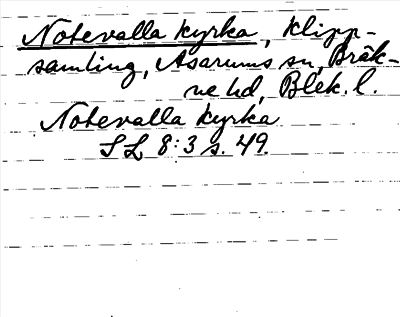 Notevalla kyrka, klipp-
samling, Asarums sn, Bräk-
ne hd, Blek. l.
Notevalla kyrka
SL 8:3 s. 49.